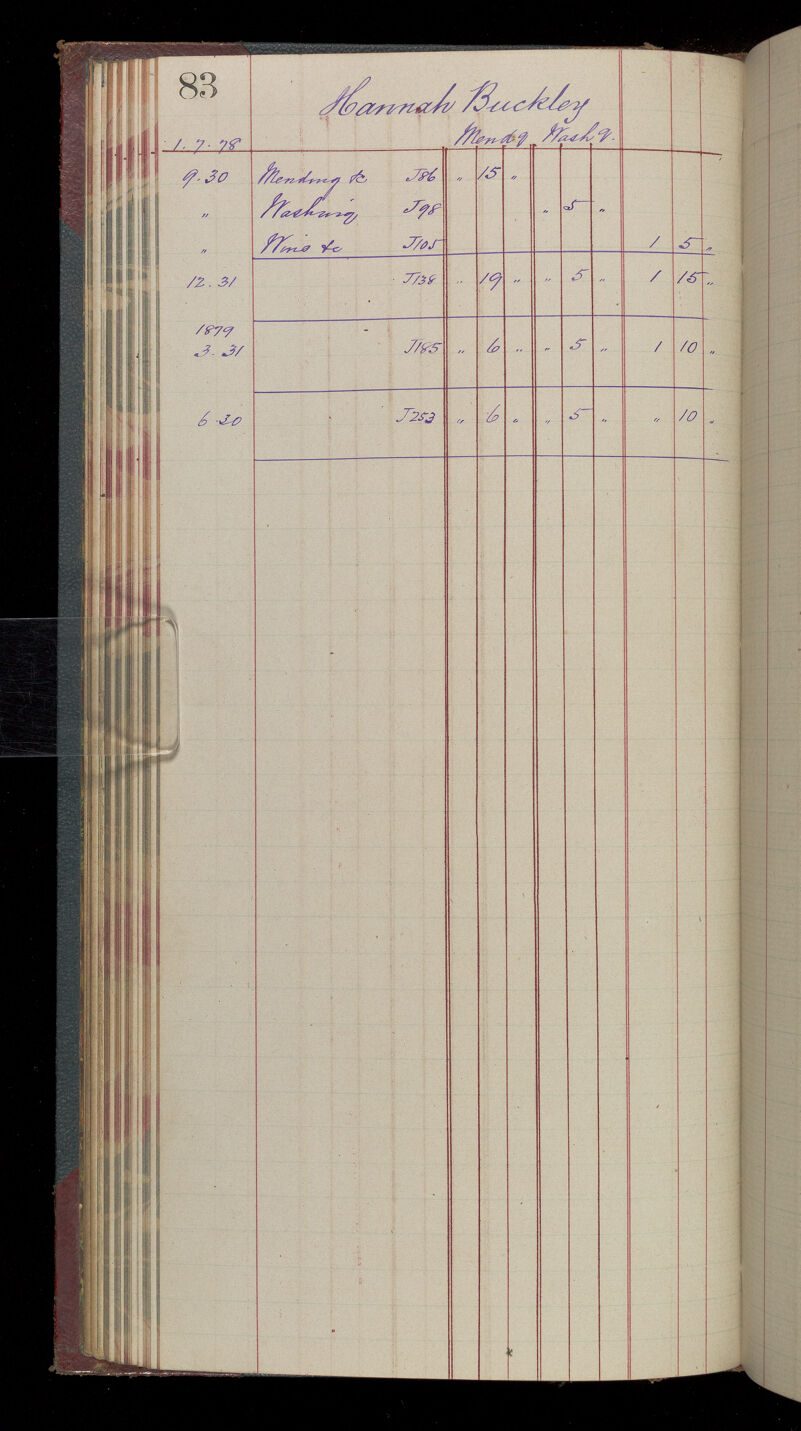 83
Hannah Buckley
1. 7. 78 Mendg Washg.
9. 30 Mending &c J86 " 15 "
" Washing J98 " 5 "
" &c J105 1 5 "
12. 31 J138 " 19 " " 5 " 1 15 "
1879
3. 31 J185 " 6 " " 5 " 1 10 "
6 30 J253 " 6 " " 5 " " 10 "